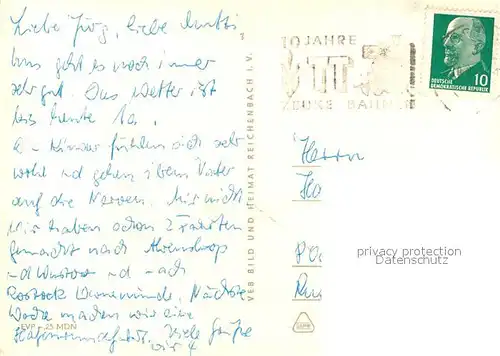 Liebe Jürg, liebe Mutti
Uns geht es noch immer
sehr gut. Das Wetter ist
bis heute 1a.
Kinder fühlen sich sehr
wohl und gehen ihrem Vater
auf die Nerven. Mir nicht
Wir haben schon 2 Fahrten
gemacht nach Ahrenshoop
und Wustrow und nach
Rostock Warnemünde. Nächste
Woche machen wir eine
Hafenrundfahrt. Viele Grüße
wir 4
EVP -.25 MDN
VEB BILD UND HEIMAT REICHENBACH I. V.
10 JAHRE
BAHN
10
DEUTSCHE
DEMOKRATISCHE REPUBLIK
Herrn
privacy protection
Datenschutz